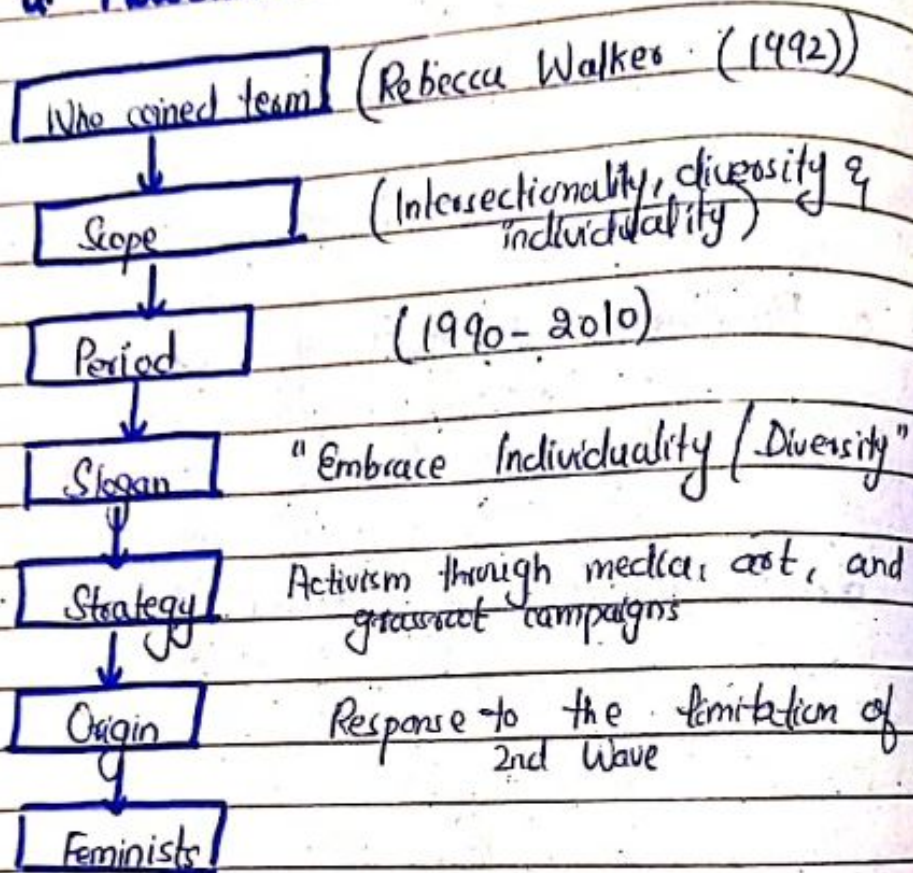 Who coined team (Rebecca Walker (1992))
Scope (Intersectionality, diversity &
individuality)
Period (1990 - 2010)
Slogan "Embrace Individuality / Diversity"
Strategy Activism through media, art, and
grassroot campaigns
Origin Response to the limitation of
2nd Wave
Feminists